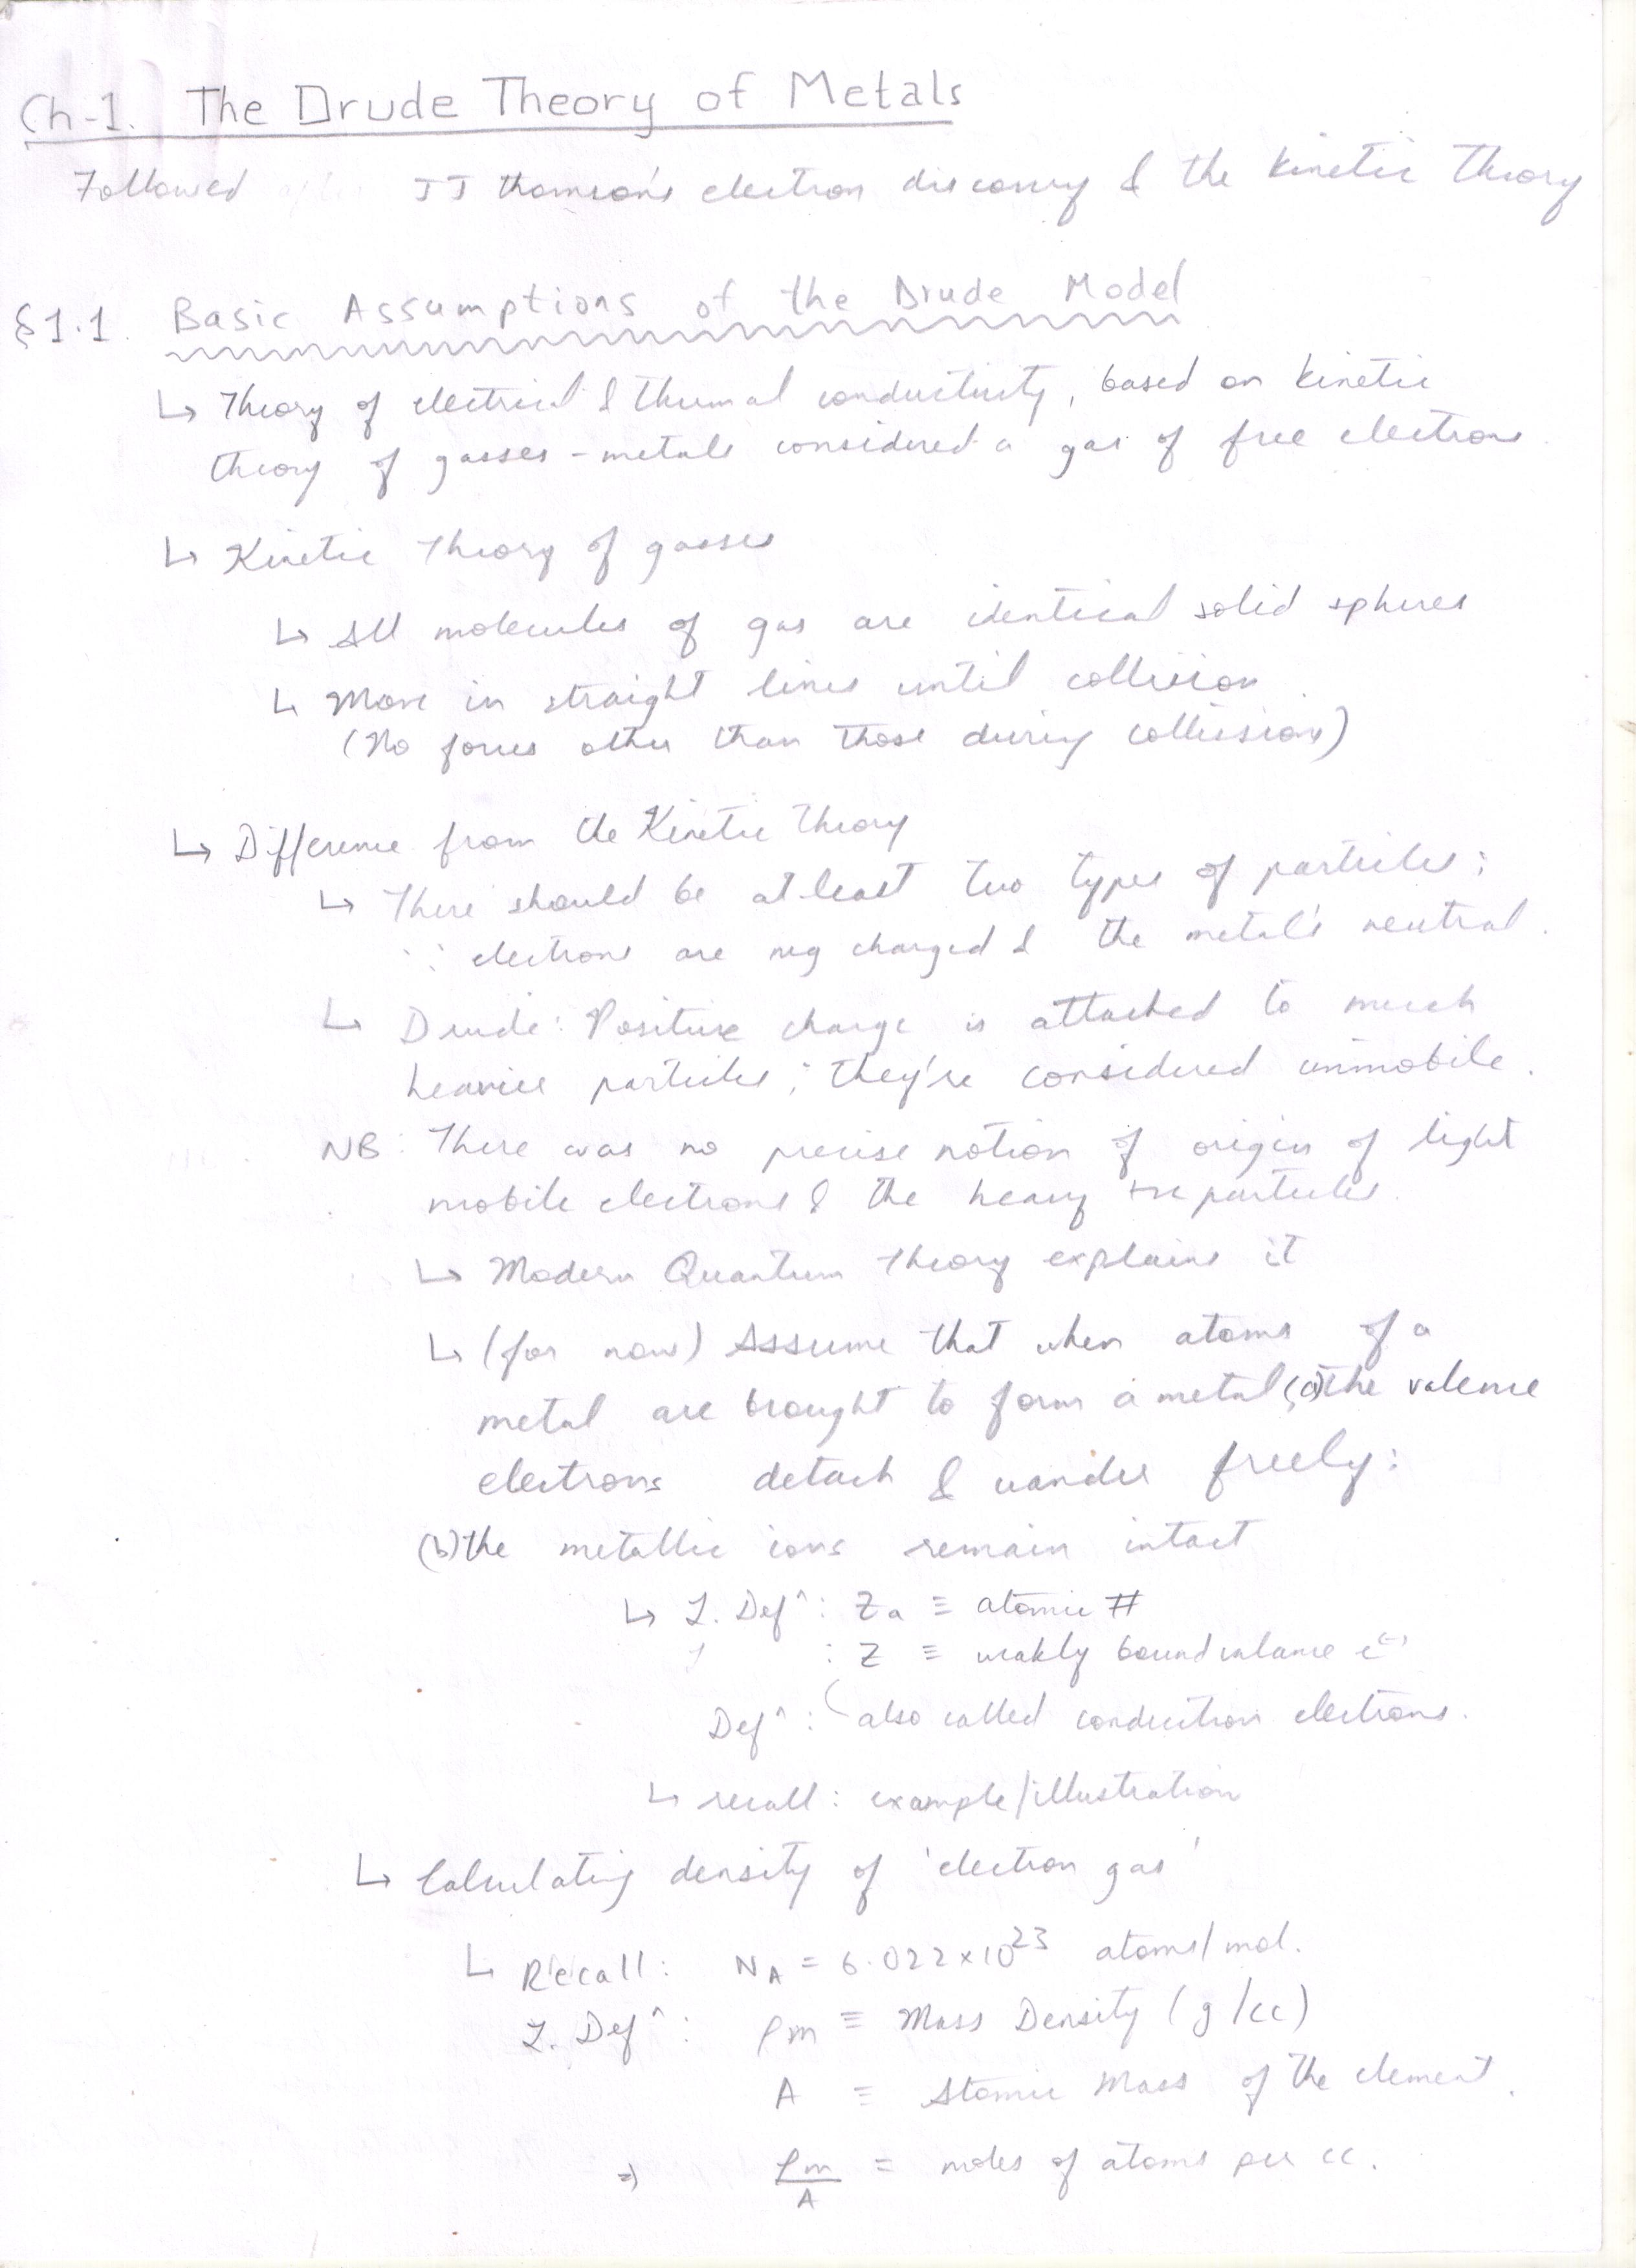 Ch-1. The Drude Theory of Metals
Followed after JJ Thomson's electron discovery & the Kinetic Theory
§1.1. Basic Assumptions of the Drude Model
↳ Theory of electrical & thermal conductivity, based on kinetic
theory of gasses - metals considered a gas of free electrons.
↳ Kinetic Theory of gasses
↳ All molecules of gas are identical solid spheres
↳ Move in straight lines until collision.
(No forces other than those during collisions)
↳ Difference from the Kinetic Theory
↳ There should be at least two types of particles;
∵ electrons are neg charged & the metal's neutral.
↳ Drude: Positive charge is attached to much
heavier particles; they're considered immobile.
NB: There was no precise notion of origin of light
mobile electrons & the heavy +ve particles.
↳ Modern Quantum Theory explains it
↳ (for now) Assume that when atoms of a
metal are brought to form a metal, (a) the valence
electrons detach & wander freely:
(b) the metallic ions remain intact
↳ L. Def^: Za ≡ atomic #
: Z ≡ weakly bound valance e(-)
Def^: also called conduction electrons.
↳ recall: example/illustration
↳ Calculating density of 'electron gas'
↳ Recall: N_A = 6.022×10^23 atoms/mol.
L. Def^: ρm ≡ Mass Density (g/cc)
A ≡ Atomic Mass of the element.
⇒ ρm/A = moles of atoms per cc.